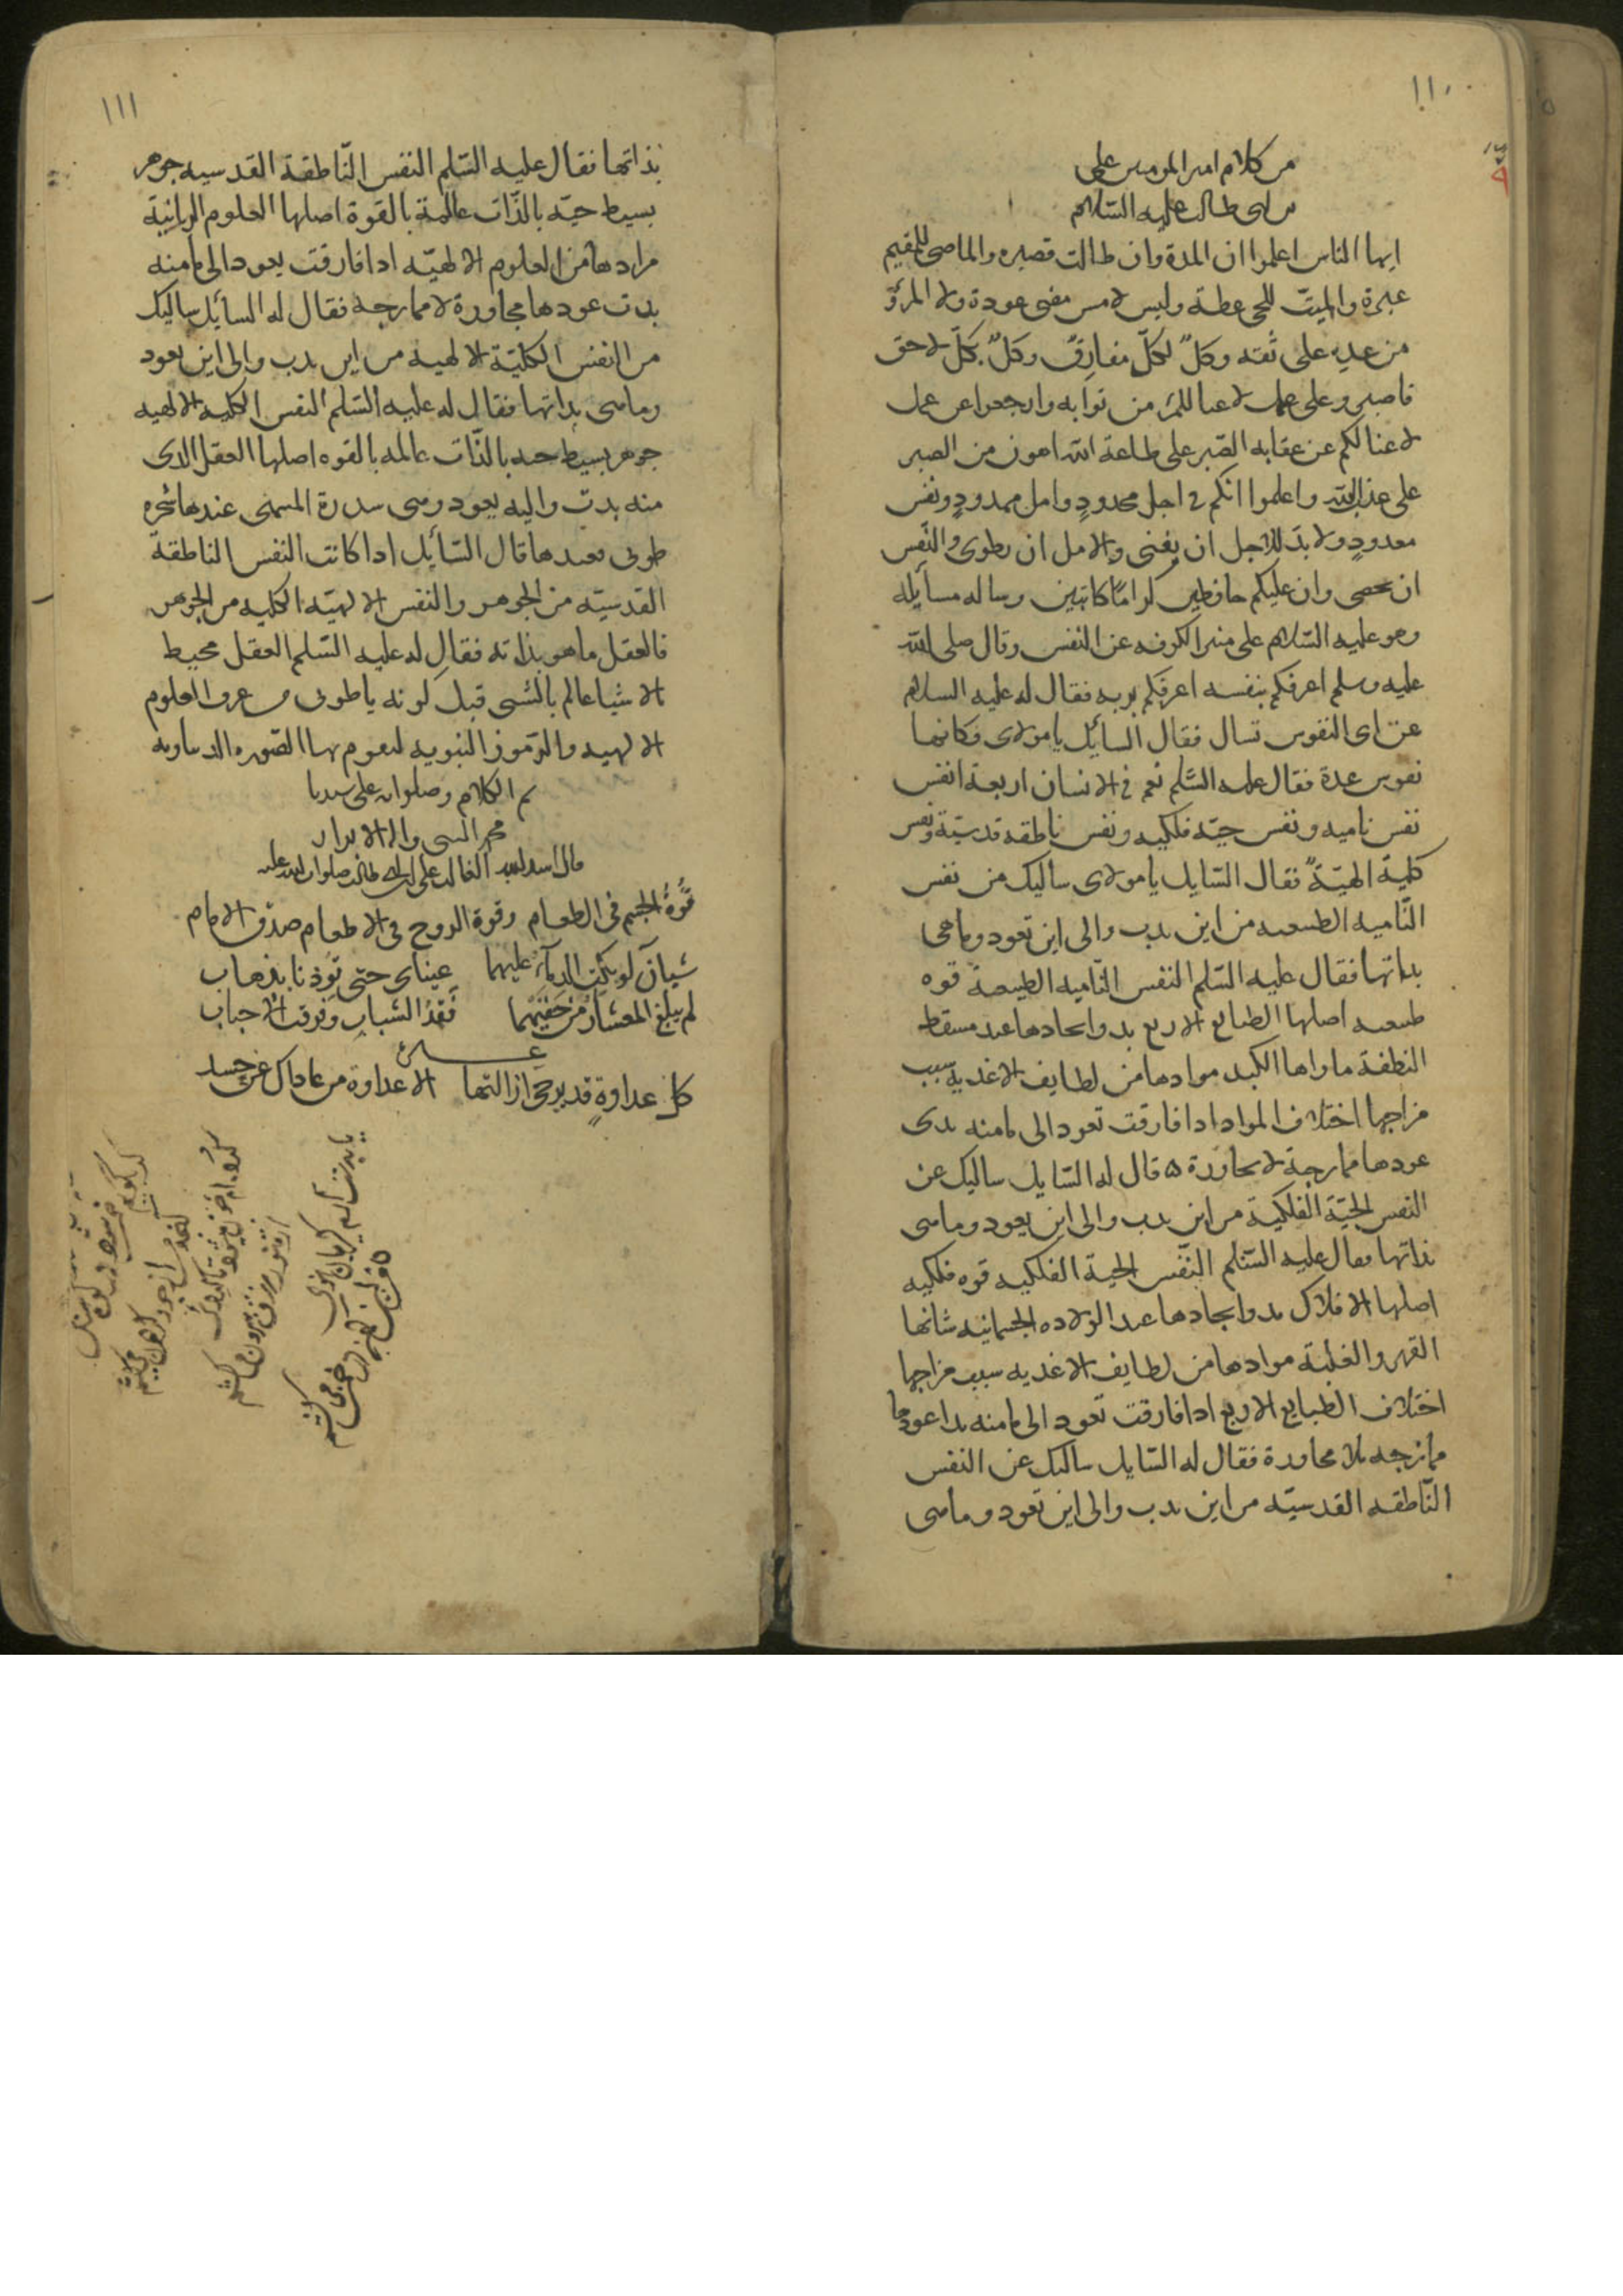 ١١٠
من كلام امير المومنين على
بن ابى طالب عليه السّلام
ايها الناس اعلموا ان المدة وان طالت قصيره والماضى للمقيم
عبرة والميّت للحى عظة وليس لامس مضى عودة ولا المرؤ
من غدٍ على ثقه وكلّ لكلّ مفارقٌ وكلٌ بكلّ لاحق
فاصبر وعلى عمل لاغنا لكم من ثوابه وارجعوا عن عمل
لاغنا لكم عن عقابه الصّبر على طاعة الله اهون من الصبر
على عذاب الله واعلموا انكم فى اجل محدودٍ وامل ممدودٍ ونفس
معدودٍ ولا بدّ للاجل ان يفنى والامل ان يطوى والنّفس
ان يحصى وان عليكم حافظين كرامًا كاتبين وساله مسايله
وهو عليه السّلام على منبر الكوفه عن النفس وقال صلى الله
عليه وسلم اعرفكم بنفسه اعرفكم بربه فقال له عليه السلام
عن اى النفوس تسال فقال السايل يا مولاى فكانها
نفوس عدة فقال عليه السّلم نعم فى الانسان اربعة انفس
نفس ناميه ونفس حيّه فلكيه ونفس ناطقه قدسيّة ونفس
كليّة الهيّةٌ فقال السّايل يا مولاى ساليك من نفس
النّاميه الطبيعيه من اين بدت والى اين تعود وماهى
بذاتها فقال عليه السّلم النفس النّاميه الطبيعية قوه
طبيعيه اصلها الطبايع الاربع بدو ايجادها عند مسقط
النطفة ماواها الكبد موادها من لطايف الاغذية سبب
مزاجها اختلاف المواد اذا فارقت تعود الى مامنه بدى
عودها ممازجة لا مجاورة ٥ قال له السّايل ساليك عن
النفس الحيّة الفلكية من اين بدت والى اين يعود وماهى
بذاتها فقال عليه السّلم النّفس الحية الفلكيه قوه فلكيه
اصلها الافلاك بدو ايجادها عند الولاده الجسمانيه شانها
القهر والغلبة موادها من لطايف الاغذيه سبب مزاجها
اختلاف الطبايع الاربع اذا فارقت تعود الى مامنه بدا عودها
ممازجه لا مجاورة فقال له السّايل ساليك عن النفس
النّاطقه القدسيّه من اين بدت والى اين تعود وماهى
١١١
بذاتها فقال عليه السّلم النفس النّاطقة القدسيه جوهر
بسيط حيّه بالذّات عالمة بالقوة اصلها العلوم الربانيّة
موادها من العلوم الالهيّه اذا فارقت يعود الى مامنه
بدت عودها مجاورة لا ممازجه فقال له السايل ساليك
من النفس الكليّة الالهيه من اين بدت والى اين يعود
وماهى بذاتها فقال له عليه السّلم النفس الكليه الالهيه
جوهر بسيط حيه بالذّات عالمه بالقوه اصلها العقل الذى
منه بدت واليه يعود وهى سدرة المنتهى عندها شجره
طوبى بعدها قال السّايل اذا كانت النفس الناطقة
القدسيّه من الجوهر والنفس الالهيّه الكليه من الجوهر
فالعقل ما هو بذاته فقال له عليه السّلم العقل محيط
بالاشيا عالم بالشى قبل كونه يا طوبى من عرف العلوم
الالهيه والرّموز النبويه
تم الكلام وصلواته على سيدنا
محمد النبى واله الابرار
قال اسد الله الغالب على ابن ابى طالب صلوات الله عليه
قُوّةُ الجسم فى الطعام وقوة الروح فى الاطعام صدق الامام
شيان لو بكت الدماء عليهما عيناى حتى توذنا بذهاب
لم يبلغ المعشار من حقيهما فقدُ الشباب وفرقت الاحباب
كل عداوةٍ قد يرجى ازالتها الا عداوة من عاداك عن حسد